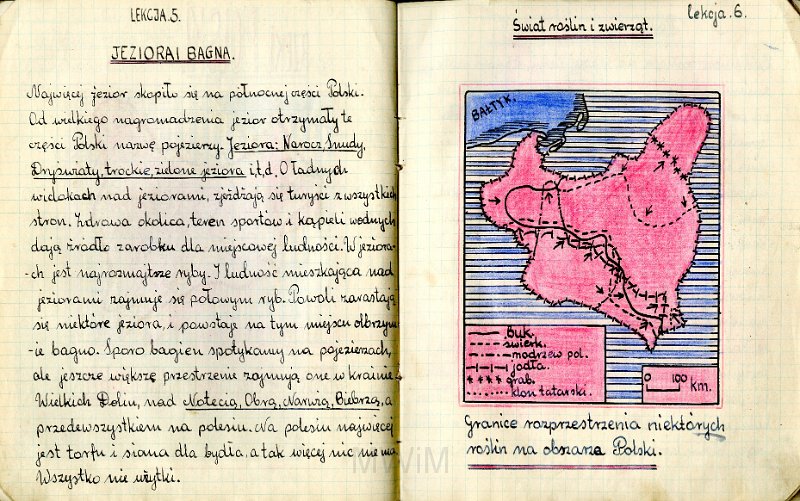 LEKCJA.5.
JEZIORA I BAGNA.
Najwięcej jezior skopiło się na północnej części Polski.
Od wielkiego nagromadzenia jezior otrzymały te
części Polski nazwę pojezierzy. Jeziora: Narocz, Snudy,
Dryświaty, trockie, zielone jeziora i,t,d. O ładnych
widokach nad jeziorami, zjeżdżają się turyści z wszystkich
stron. Zdrowa okolica, teren sportów i kąpieli wodnych
dają źródło zarobku dla miejscowej ludności. W jeziora-
-ch jest najrozmajtsze ryby. I ludność mieszkająca nad
jeziorami zajmuje się połowym ryb. Powoli zarastają
się niektóre jeziora, i powstaje na tym miejscu olbrzym-
-ie bagno. Sporo bagien spotykamy na pojezierzach,
ale jeszcze większe przestrzenie zajmują one w krainie
Wielkich Dolin, nad Notecią, Obrą, Narwią, Biebrzą, a
przedewszystkiem na polesiu. Na polesiu najwięcej
jest torfu i siana dla bydła, a tak więcej nic nie ma.
Wszystko nie użytki.
lekcja.6.
Świat roślin i zwierząt.
BAŁTYK.
Buk.
świerk.
modrzew pol.
jodła.
grab.
klon tatarski.
0 100 km.
Granice rozprzestrzenia niektórych
roślin na obszarze Polski.
MWiM